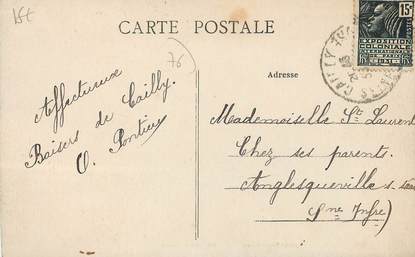 15t
CARTE POSTALE
15c
EXPOSITION
COLONIALE
INTERNATIONALE
PARIS 1931
CAILLY
76
Adresse
Affectueux
Baisers de Cailly.
O. Pontieu
Mademoiselle St Laurent
Chez ses parents.
Anglesqueville s.
Sne Infre)